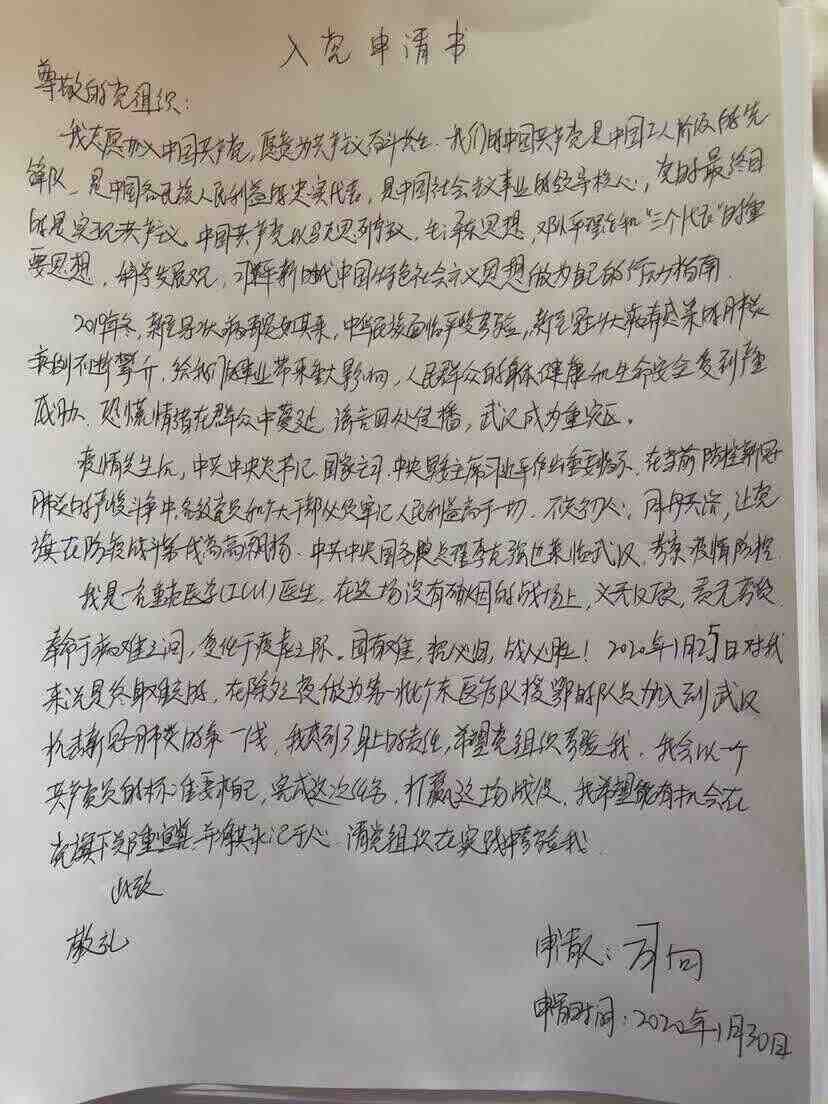 入党申请书
尊敬的党组织:
我志愿加入中国共产党,愿意为共产主义奋斗终生.我们的中国共产党是中国工人阶级的先
锋队,是中国各民族人民利益的忠实代表,是中国社会主义事业的领导核心,党的最终目
的是实现共产主义.中国共产党以马克思列宁主义,毛泽东思想,邓小平理论和“三个代表”的重
要思想,科学发展观,习近平新时代中国特色社会主义思想做为自己的行动指南.
2019年冬,新型冠状病毒忽如其来,中华民族面临严峻考验,新型冠状病毒感染的肺炎
病例不断攀升,给我们的事业带来重大影响,人民群众的身体健康和生命安全受到严重
威胁.恐慌情绪在群众中蔓延,谣言四处传播,武汉成为重灾区。
疫情发生后,中共中央总书记.国家主席.中央军委主席习近平作出重要指示,在当前防控新冠
肺炎的严峻斗争中,各级党员和广大干部必须牢记人民利益高于一切.不忘初心,同舟共济,让党
旗在防疫战斗第一线高高飘扬.中共中央国务院总理李克强也来临武汉,考察疫情防控.
我是一名重症医学(ICU)医生,在这场没有硝烟的战场上,义无反顾,责无旁贷,
奉命于病难之间,受任于疫虐之际。国有难,招必归,战必胜!2020年1月25日对我
来说是终身难忘的,在除夕之夜做为第一批广东医疗队援鄂的队员加入到武汉
抗击新冠肺炎的第一线,我感到了身上的责任,希望党组织考验我.我会以一个
共产党员的标准要求自己,完成这次任务,打赢这场战役.我希望能有机会在
党旗下郑重宣誓并将其永记于心.请党组织在实践中考验我.
此致
敬礼
申请人:
申请时间:2020年1月30日